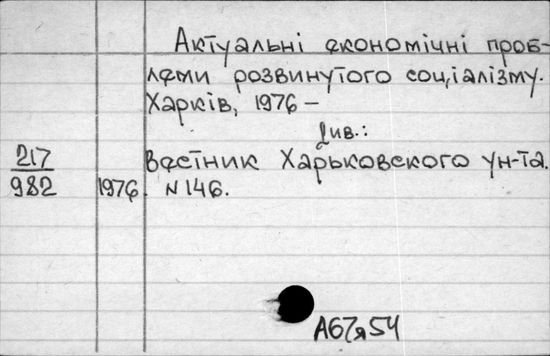 Актуальні економічні проб-
леми розвинутого соціалізму.
Харків, 1976 –
Див.:
217 Вестник Харьковского ун-та.
982 1976. N 146.
А67я54